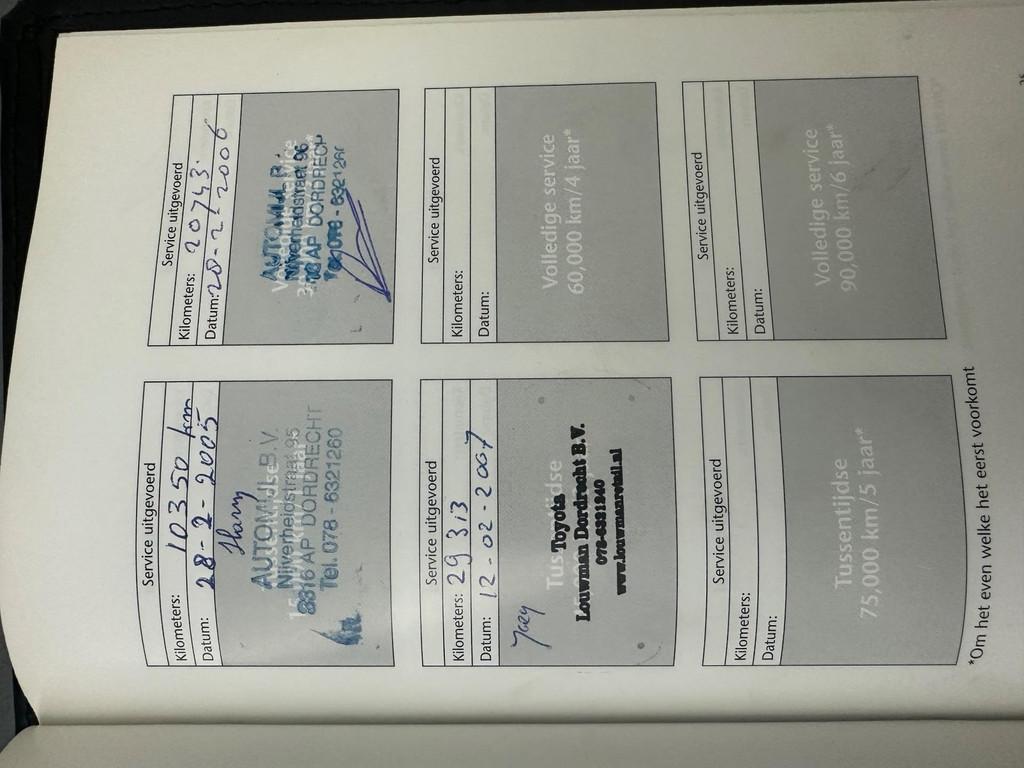 Service uitgevoerd
Kilometers: 10350 km
Datum: 28-2-2005
Harry
AUTOMI
B.V.
Nijverheidstraat 95
3316 AP DORDRECHT
Tel. 078 - 6321260
Service uitgevoerd
Kilometers: 20743.
Datum: 20-2-2006
Nijverheidstraat 95
AP DORDRECH
078 - 6321260
Service uitgevoerd
Kilometers: 29 313
Datum: 12-02-2007
Joey
Tussentijdse
Toyota
Louwman Dordrecht B.V.
078-6321240
www.louwmanretail.nl
Service uitgevoerd
Kilometers:
Datum:
Volledige service
60,000 km/4 jaar*
Service uitgevoerd
Kilometers:
Datum:
Tussentijdse
75,000 km/5 jaar*
Service uitgevoerd
Kilometers:
Datum:
Volledige service
90,000 km/6 jaar*
*Om het even welke het eerst voorkomt